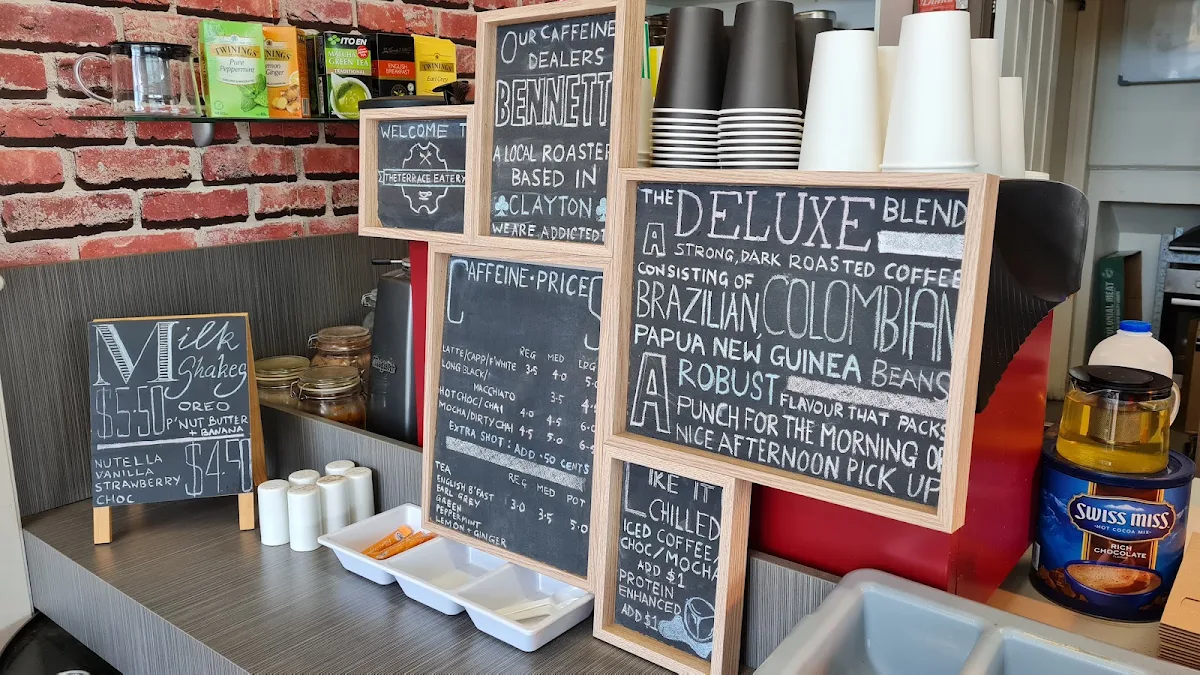 TWININGS
Pure
Peppermint
TWININGS
Lemon
Ginger
ITO EN
MATCHA
GREEN TEA
TRADITIONAL
ENGLISH
BREAKFAST
TWININGS
Earl Grey
WELCOME T
THE TERRACE EATERY
OUR CAFFEINE
DEALERS
BENNETT
A LOCAL ROASTER
BASED IN
CLAYTON
WE ARE ADDICTED
Milk
Shakes
$5.50 OREO
P'NUT BUTTER
+ BANANA
NUTELLA
VANILLA
STRAWBERRY
CHOC
CAFFEINE • PRICES
REG MED LRG
LATTE/CAPP/F'WHITE 3.5 4.0 5.0
LONG BLACK/
MACCHIATO 3.5
HOT CHOC/CHAI 4.0 4.5
MOCHA/DIRTY CHAI 4.5 5.0
EXTRA SHOT: ADD .50 CENTS
TEA REG MED POT
ENGLISH B'FAST 3.0 3.5 5.0
EARL GREY
GREEN
PEPPERMINT
LEMON + GINGER
THE DELUXE BLEND
A STRONG, DARK ROASTED COFFEE
CONSISTING OF
BRAZILIAN, COLOMBIAN
PAPUA NEW GUINEA BEANS
A ROBUST FLAVOUR THAT PACKS
PUNCH FOR THE MORNING OR
NICE AFTERNOON PICK UP
LIKE IT
CHILLED
ICED COFFEE
CHOC/MOCHA
ADD $1
PROTEIN
ENHANCED
ADD $1
SWISS MISS
HOT COCOA MIX
RICH
CHOCOLATE